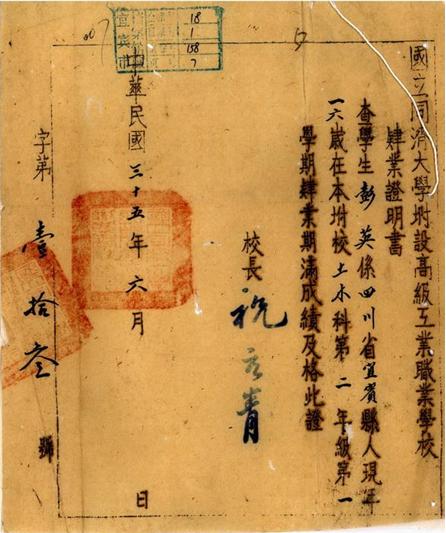 國立同濟大學附設高級工業職業學校
肄業證明書
查學生彭英係四川省宜賓縣人現年
一六歲在本附校土木科第二年級第一
學期肄業期滿成績及格此證
校長 祝元青
中華民國三十五年六月 日
字第壹拾叁號
宜賓市
18
1
158
7